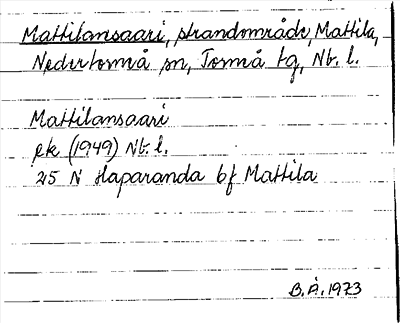 Mattilansaari, strandområde, Mattila,
Nedertorneå sn, Torneå tg, Nb. l.
Mattilansaari
ek (1949) Nb. l.
25 N Haparanda bf Mattila
B.Å. 1973